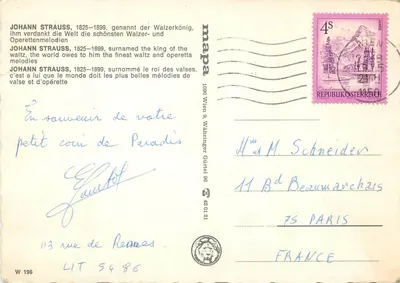 JOHANN STRAUSS, 1825–1899, genannt der Walzerkönig,
ihm verdankt die Welt die schönsten Walzer- und
Operettenmelodien
JOHANN STRAUSS, 1825–1899, surnamed the king of the
waltz, the world owes to him the finest waltz and operetta
melodies
JOHANN STRAUSS, 1825–1899, surnommé le roi des valses,
c'est a lui que le monde doit les plus belles mélodies de
valse et d'opérette
En souvenir de votre
petit coin de Paradis
113 rue de Rennes
LIT 54 86
W 196
mapa
1090 Wien 9, Währinger Gürtel 96
43 01 81
4S
REPUBLIK ÖSTERREICH
WIEN
H et M Schneider
11 Bd Beaumarchais
75 PARIS
FRANCE